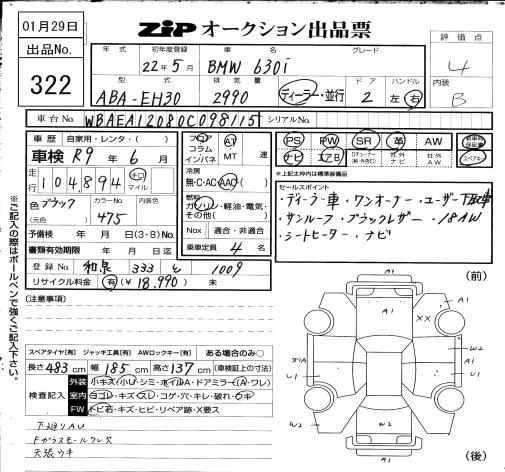 01月29日
出品No.
322
ZIP オークション出品票
評価点
4
内装
B
年式 初年度登録 車名 グレード
22年5月 BMW 630i
型式 排気量 ドア ハンドル
ABA-EH30 2990 ディーラー・並行 2 左・右
車台No. WBAEA12080C098115 シリアルNo.
車歴 自家用・レンタ・( )
車検 R9年6月
走行 104,894 キロ マイル
色 ブラック カラーNo. 内装色
(元色) 475
予備検 年 月 日(3・8)No.
書類有効期限 年 月 日迄
登録No. 和泉 333 1009
リサイクル料金 有(¥18,990) 未
フロア コラム インパネ AT MT 速
冷房
無・C・AC・AAC・( )
燃料
ガソリン・軽油・電気・その他( )
Nox 適合・非適合
乗車定員 4 名
PS PW SR 革 AW 新車時保証書
ナビ エアB 社外ナビ 社外AW スペアキー
※上記太枠内は標準装備品
セールスポイント
・ディーラー車・ワンオーナー・ユーザー下取車
・サンルーフ・ブラックレザー・18AW
・シートヒーター・ナビ
※ご記入の際はボールペンで強くご記入下さい。
[注意事項]
スペアタイヤ[有] ジャッキ工具[有] AWロックキー[有] ある場合のみ○
長さ483cm 幅185cm 高さ137cm (車検証上の寸法)
検査記入
外装 小キズ・小U・シミ・ホイルA・ドアミラー(A・ワレ)
室内 ヨゴレ・キズ・スレ・コゲ・穴・キレ・破れ・ウキ
FW トビ石・キズ・ヒビ・リペア跡・X要ス
下廻りAU
Fガラスモールワレ欠
天張ウキ
(前)
A1
A1
XX
W2
ズリA
U1
A1
U1
W2
W2
A1
(後)